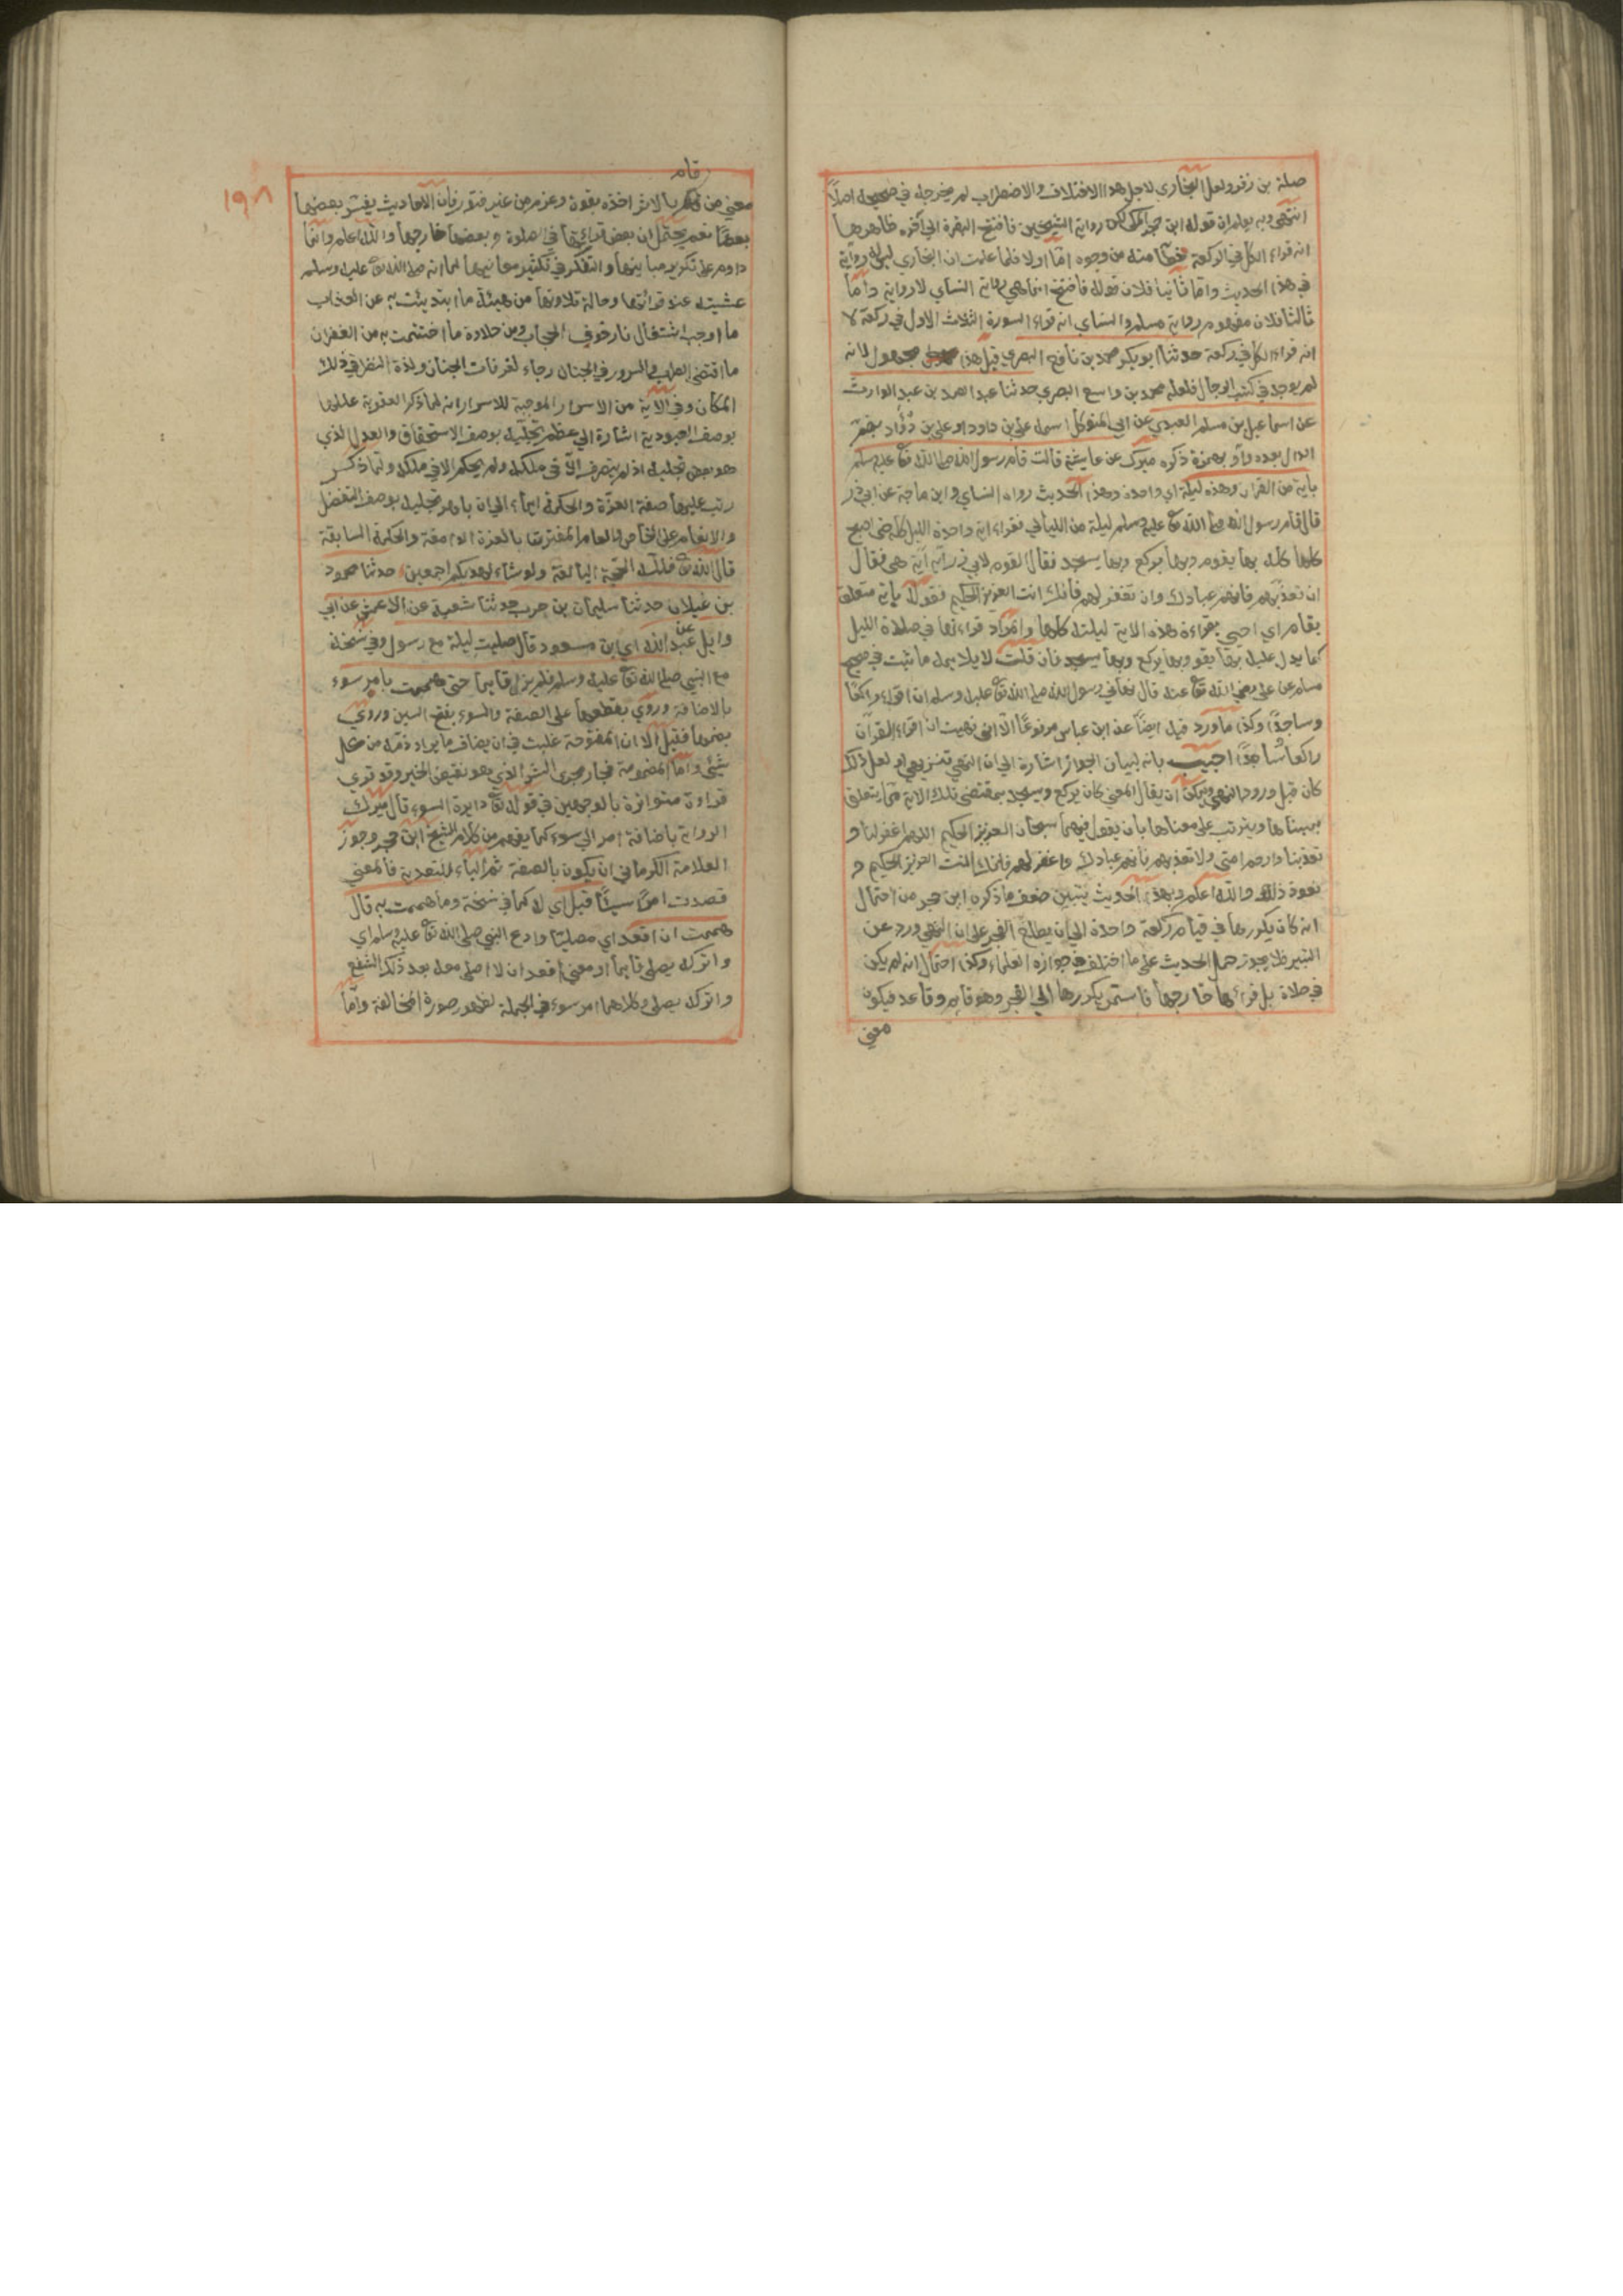 صلة بن زفر ولعل البخاري لاجل هذا الاختلاف والاضطراب لم يخرجه في صحيحه اصلاً
انتهى وبه يعلم ان قوله ابن حجر المكي لكن رواية الشيخين فافتتح البقرة الى آخره ظاهرها
انه قراء الكل في الركعة خطأ منه من وجوه اما اولا فلما علمت ان البخاري ليس له رواية
في هذا الحديث واما ثانيا فلان قوله فافتتح انما هي رواية النساي لا رواية واما
ثالثا فلان مفهوم رواية مسلم والنساي انه قراء السورة الثلاث الاول في ركعة لا
انه قراء الكل في ركعة حدثنا ابو بكر محمد بن نافع البصري قيل هذا مجهول لانه
لم يوجد في كتب الرجال فلعله محمد بن واسع البصري حدثنا عبد الصمد بن عبد الوارث
عن اسماعيل بن مسلم العبدي عن ابي المتوكل اسمه علي بن داود او علي بن دؤاد بضم
الدال بعده واو بهمزة ذكره ميرك عن عايشة قالت قام رسول الله صلى الله تع عليه وسلم
باية من القران وهذه ليلة اي واحدة وهذا الحديث رواه النساي وابن ماجة عن ابي ذر
قال قام رسول الله صلى الله تع عليه وسلم ليلة من الليالي فقراء اية واحدة الليل كله حتى اصبح
كلها كله بها يقوم وبها يركع وبها يسجد فقال القوم لابي ذر اية آية هي فقال
ان تعذبهم فانهم عبادك وان تغفر لهم فانك انت العزيز الحكيم فقوله باية متعلق
بقام اي احيى بقراءة هذه الاية ليلته كلها والمراد قراءتها في صلاة الليل
كما يدل عليه بها يقوم وبها يركع وبها يسجد فان قلت لا يلايمه ما ثبت في صحيح
مسلم عن علي رضي الله تع عنه قال نهاني رسول الله صلى الله تع عليه وسلم ان اقراء راكعًا
وساجدًا وكذا ماورد فيه ايضًا عن ابن عباس مرفوعًا الا اني نهيت ان اقراء القرآن
راكعا ساجدًا اجيب بانه لبيان الجواز اشارة الى ان النهي تنزيهي او لعل ذلك
كان قبل ورود النهي ويمكن ان يقال المعنى كان يركع ويسجد بمقتضى تلك الاية مما يتعلق
بمبناها ويترتب على معناها بان يقول فيهما سبحان العزيز الحكيم اللهم اغفر لنا ولا
تعذبنا وارحم امتي ولا تعذبهم فانهم عبادك واغفر لهم فانك انت العزيز الحكيم و
نحوذ ذلك والله اعلم وبهذا الحديث يتبين ضعف ما ذكره ابن حجر من احتمال
انه كان يكررها في قيام ركعة واحدة الى ان يطلع الفجر على ان النهي ورد عن
البتير فلا يجوز حمل الحديث على ما اختلف في جوازه العلماء وكذا احتمال انه لم يكن
في صلاة بل قراءها خارجها فاستمر يكررها الى الفجر وهو قايم وقاعد فيكون
معنى
١٩٨
قام
معنى من بالامر اخذه بقوة وعزم من غير فتور فان الاحاديث يفسر بعضها
بعضًا نعم يحتمل ان بعض قراءتها في الصلوة وبعضها خارجها والله اعلم وانما
داوم على تكرير مبانيها والتفكر في تكثير معانيها لما انه صلى الله تع عليه وسلم
غشيته عند قرائتها وحالة تلاوتها من هيبة ما ابتديئت به عن العذاب
ما اوجب اشتغال نار خوف الحجاب ومن حلاوة ما اختتمت به من الغفران
ما اقتضى الطرب والسرور في الجنان رجاء لغرفات الجنان ولذة النظر في ذلك
المكان وفي الاية من الاسرار الموجبة للاسرار انه لما ذكر العقوبة عللها
بوصف العبودية اشارة الى عظم تجليه بوصف الاستحقاق والعدل الذي
هو بعض تجليه اذ لم يتصرف الا في ملكه ولم يحكم الا في ملكه ولما ذكر
رتب عليها صفة العزّة والحكمة ايماء الى ان باهر تجليه بوصف التفضل
والانعام على الخاص والعام المقترنتا بالعزة الدامغة والحكمة السابقة
قال الله تع فلله الحجة البالغة ولو شاء لهديكم اجمعين حدثنا محمود
بن غيلان حدثنا سليمان بن حرب حدثنا شعبة عن الاعمش عن ابي
وايل عن عبد الله اي ابن مسعود قال صليت ليلة مع رسول وفي نسخة
مع النبي صلى الله تع عليه وسلم فلم يزل قايما حتى هممت بامر سوء
بالاضافة وروي بقطعها على الصفة والسوء بفتح السين وروي
بضمها فقيل الا ان المفتوحة غلبت في ان يضاف ما يراد ذمه من كل
شيئ واما المضمومة فجار مجرى الشر الذي هو نقيض الخير وقد قري
قراءة متواترة بالوجهين في قوله تع دايرة السوء قال ميرك
الرواية باضافة امر الى سوء كما يفهم من كلام الشيخ ابن حجر وجوز
العلامة الكرماني ان يكون بالصفة ثم الباء للتعدية فالمعنى
قصدت امرًا سيئًا قيل اي له كما في نسخة وما هممت به قال
هممت ان اقعد اي مصليًا وادع النبي صلى الله تع عليه وسلم اي
واتركه يصلى قايما او معنى اقعد ان لا اصلى معه بعد ذلك الشفع
واتركه يصلى وكلاهما امر سوء في الجملة لظهور صورة المخالفة واما